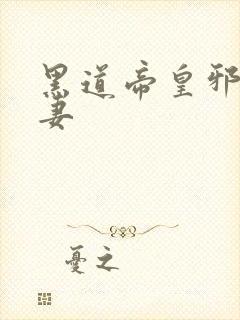 黑道帝皇邪
妻
憂之